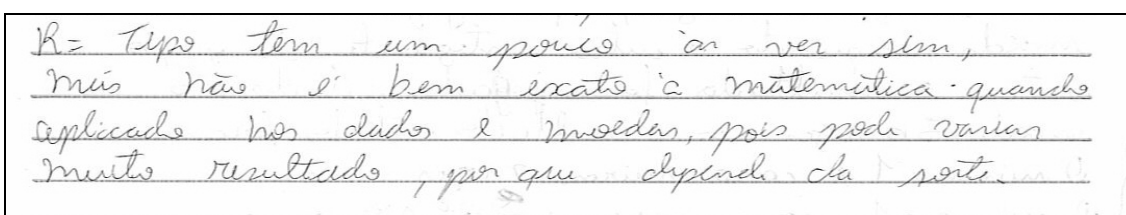 R= Tipo tem um pouco à ver sim,
mais não é bem exato à matemática quando
aplicado nos dados e moedas, pois pode variar
muito resultado, por que depende da sorte.